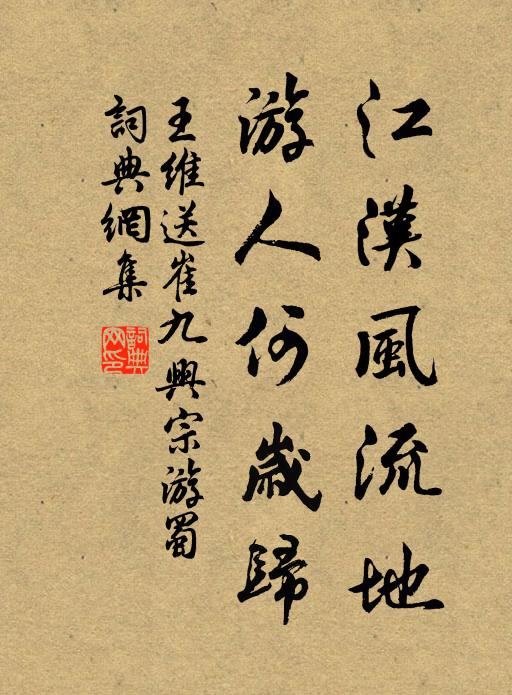 江漢風流地
游人何歲歸
王維送崔九興宗游蜀
詞典網集
詞典网印